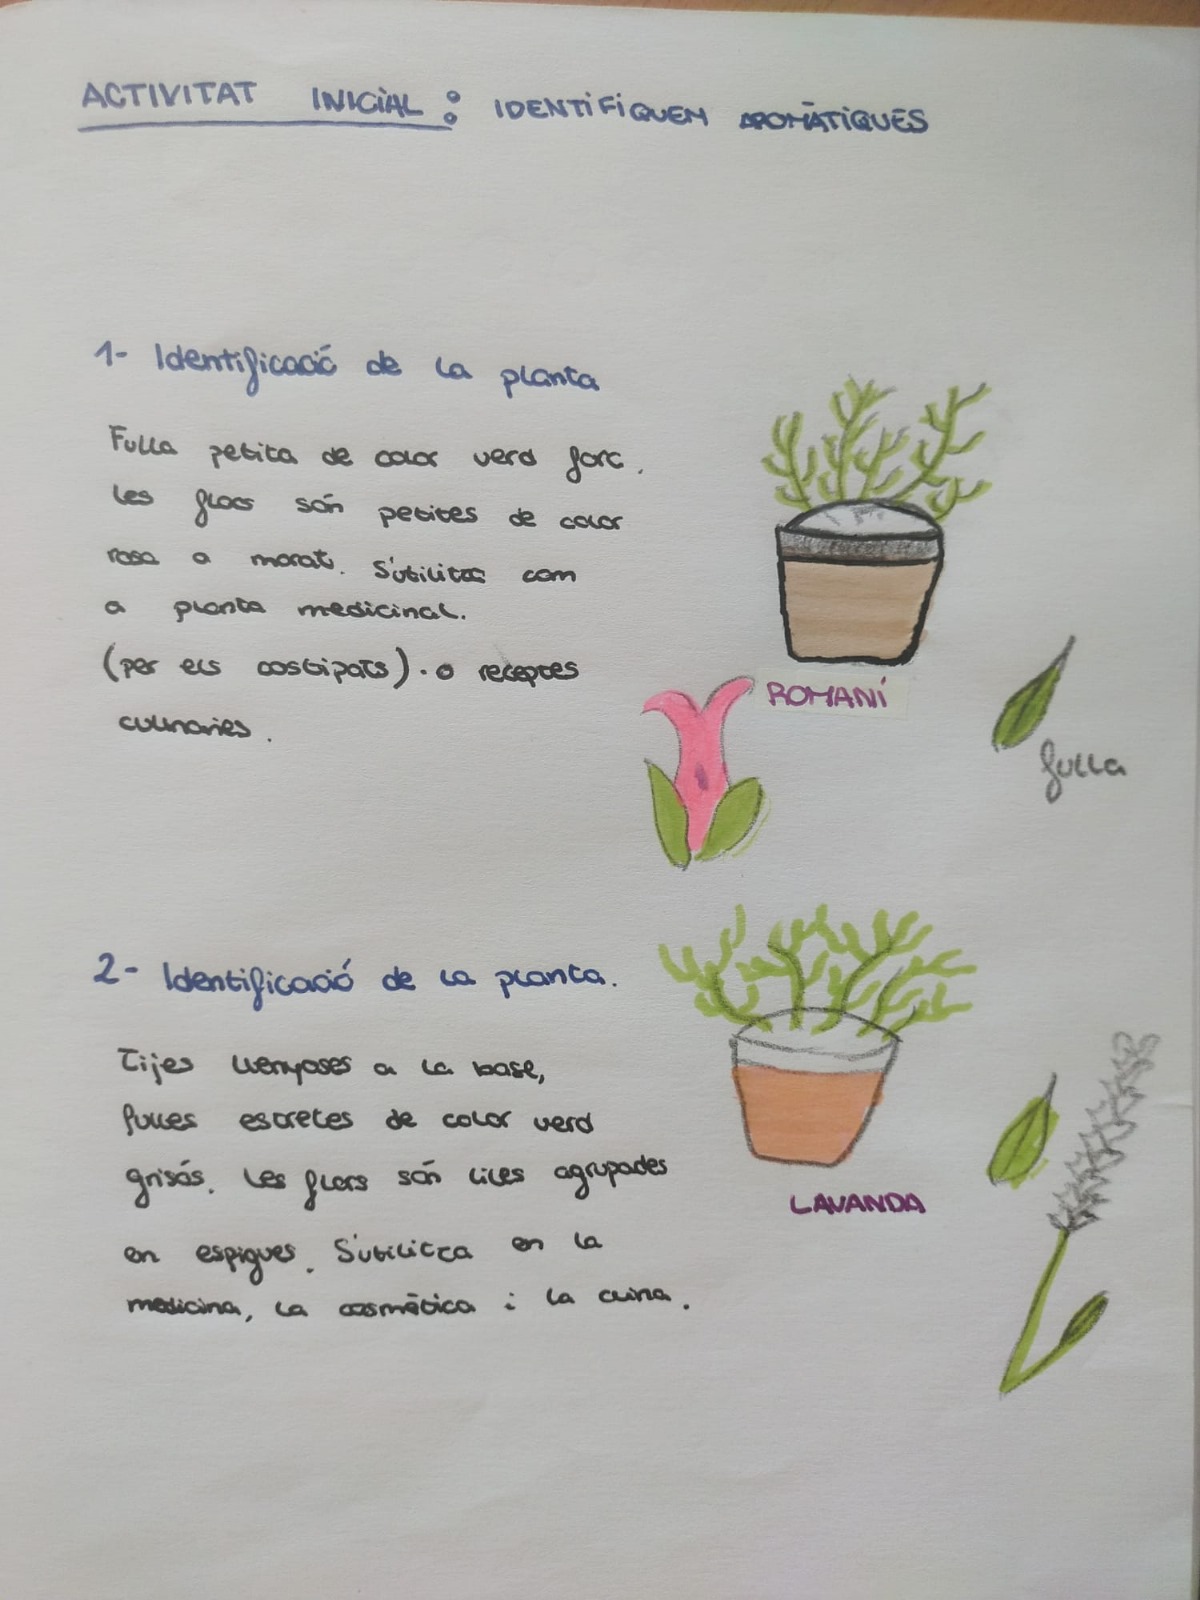 ACTIVITAT INICIAL: IDENTIFIQUEM AROMÀTIQUES
1- Identificació de la planta
Fulla petita de color verd forc.
Les flors són petites de color
rosa a morat. S'utilitza com
a planta medicinal.
(per els costipats). o receptes
culinaries.
ROMANÍ
fulla
2- Identificació de la planta.
Tijes llenyoses a la base,
fulles estretes de color verd
grisós. Les flors són liles agrupades
en espigues. S'utilitza en la
medicina, la cosmètica i la cuina.
LAVANDA